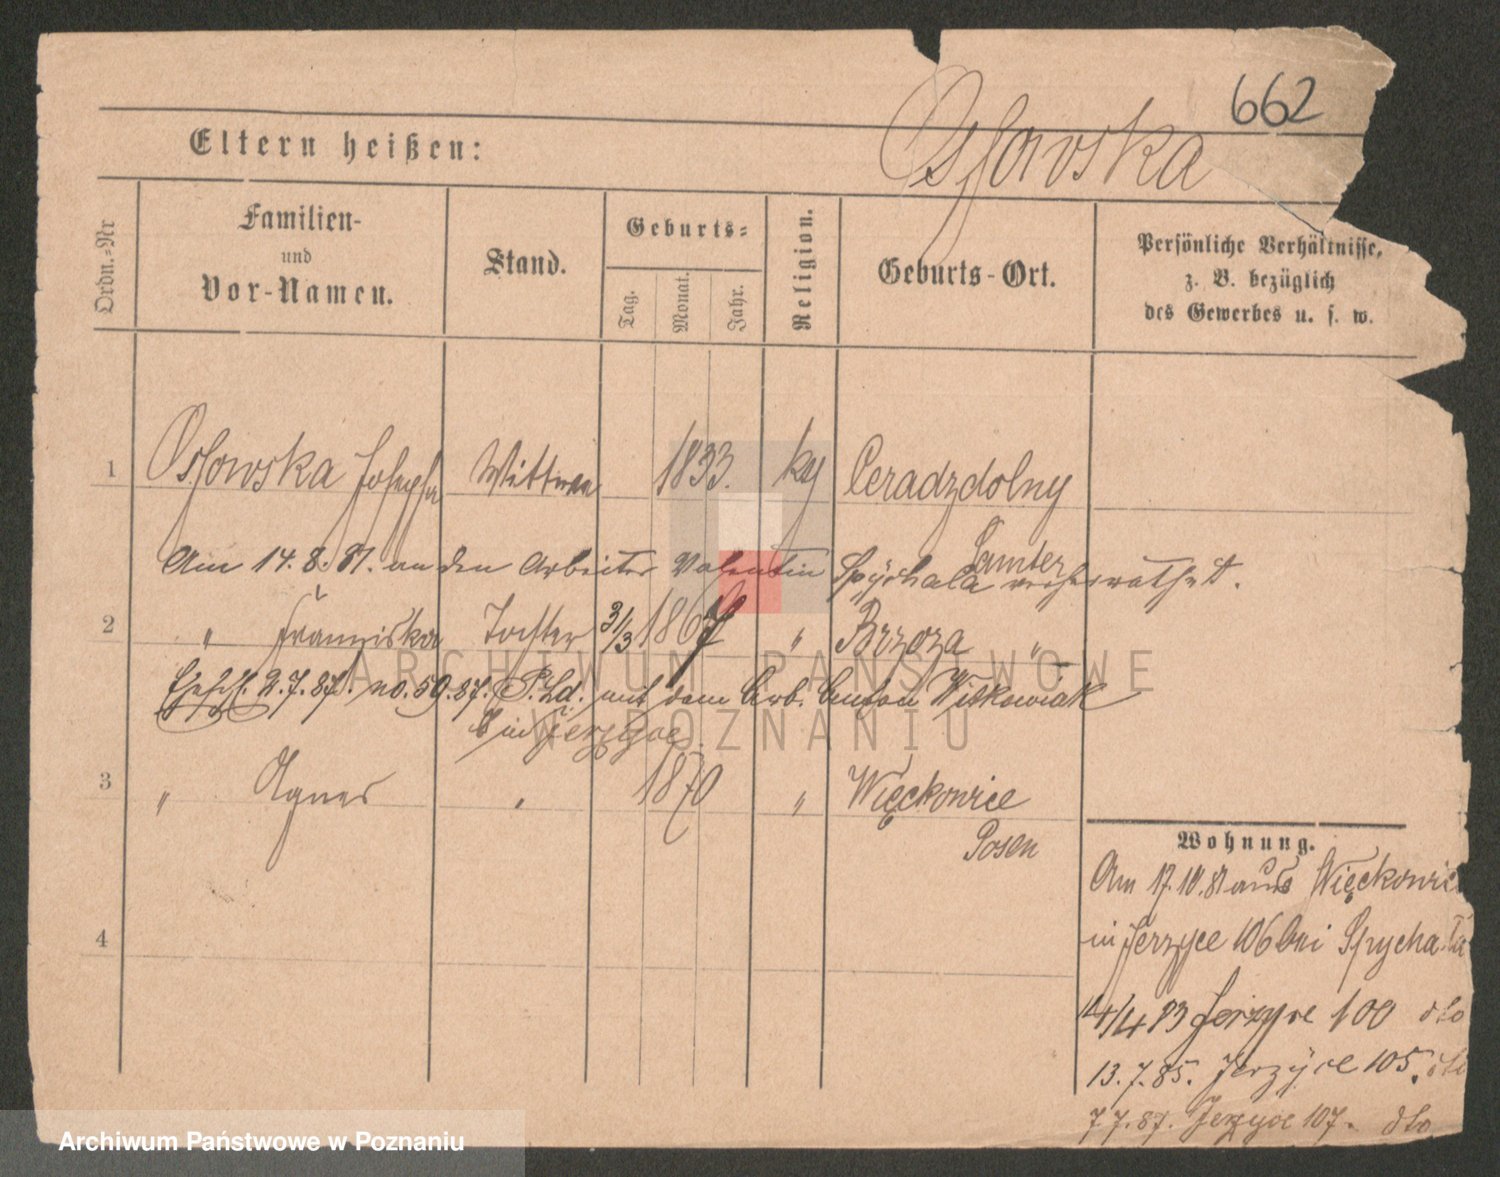 662
Eltern heißen:
Osſowska
Ordn.-Nr
Familien-
und
Vor-Namen.
Stand.
Geburts-
Tag.
Monat.
Jahr.
Religion.
Geburts-Ort.
Persönliche Verhältnisse,
z. B. bezüglich
des Gewerbes u. s. w.
1 Osſowska Josepha Wittwe 1833. kg Ceradzdolny
Samter
Am 14.8.81. an den Arbeiter Valentin Spychala verheirathet.
2 " Franziska Tochter 3/3 1867 " Brzoza "
Eheschl. 2.7.87. no. 59.87. P. Ld. mit dem Arb. Anton Witkowiak
in Jerzyce.
3 " Agnes " 1870 " Więckowice
Posen
4
Wohnung.
Am 17.10.81 aus Więckowice
in Jerzyce 106 bei Spychala
14/4 83 Jerzyce 100 dto
13.7.85. Jerzyce 105. dto
7.7.87. Jerzyce 107. dto
ARCHIWUM PAŃSTWOWE
W POZNANIU
Archiwum Państwowe w Poznaniu